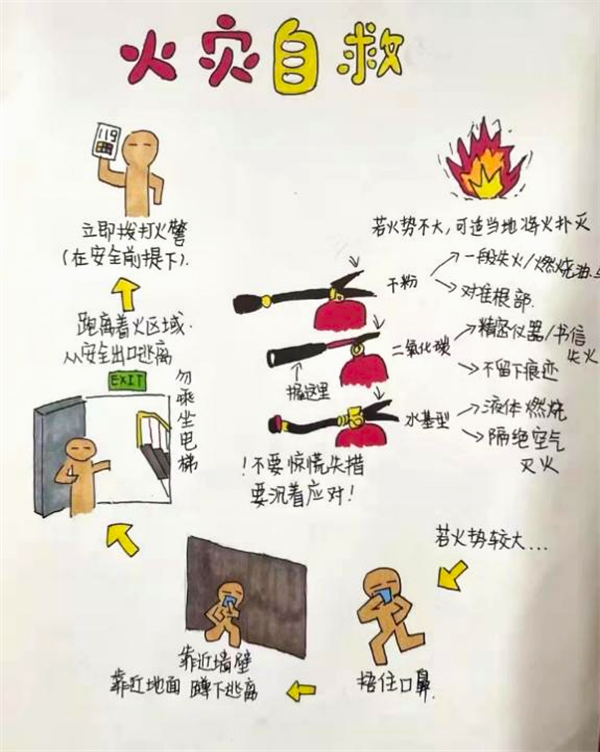 火灾自救
若火势不大,可适当地将火扑灭
干粉
一段失火/燃烧油
对准根部.
二氧化碳
精密仪器/书信
失火
不留下痕迹
握这里
水基型
液体燃烧
隔绝空气
灭火
!不要惊慌失措
要沉着应对!
若火势较大...
捂住口鼻.
靠近墙壁
靠近地面 蹲下逃离
勿乘坐电梯
EXIT
跑离着火区域.
从安全出口逃离
119
立即拨打火警
(在安全前提下).